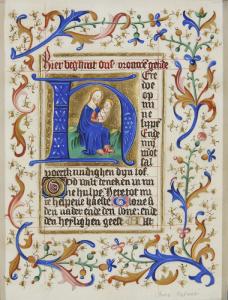 Hier beghint onse vrouwe ghetide
Ere
de
op
mi
ne
lippe
Ende
mij
mot
sal
voertkundighen dyn lof
God wilt teneken in mi
ne hulpe Here tot mi
re helpene haeste Glorie si
den vader ende den sone ende
den heylighen geest